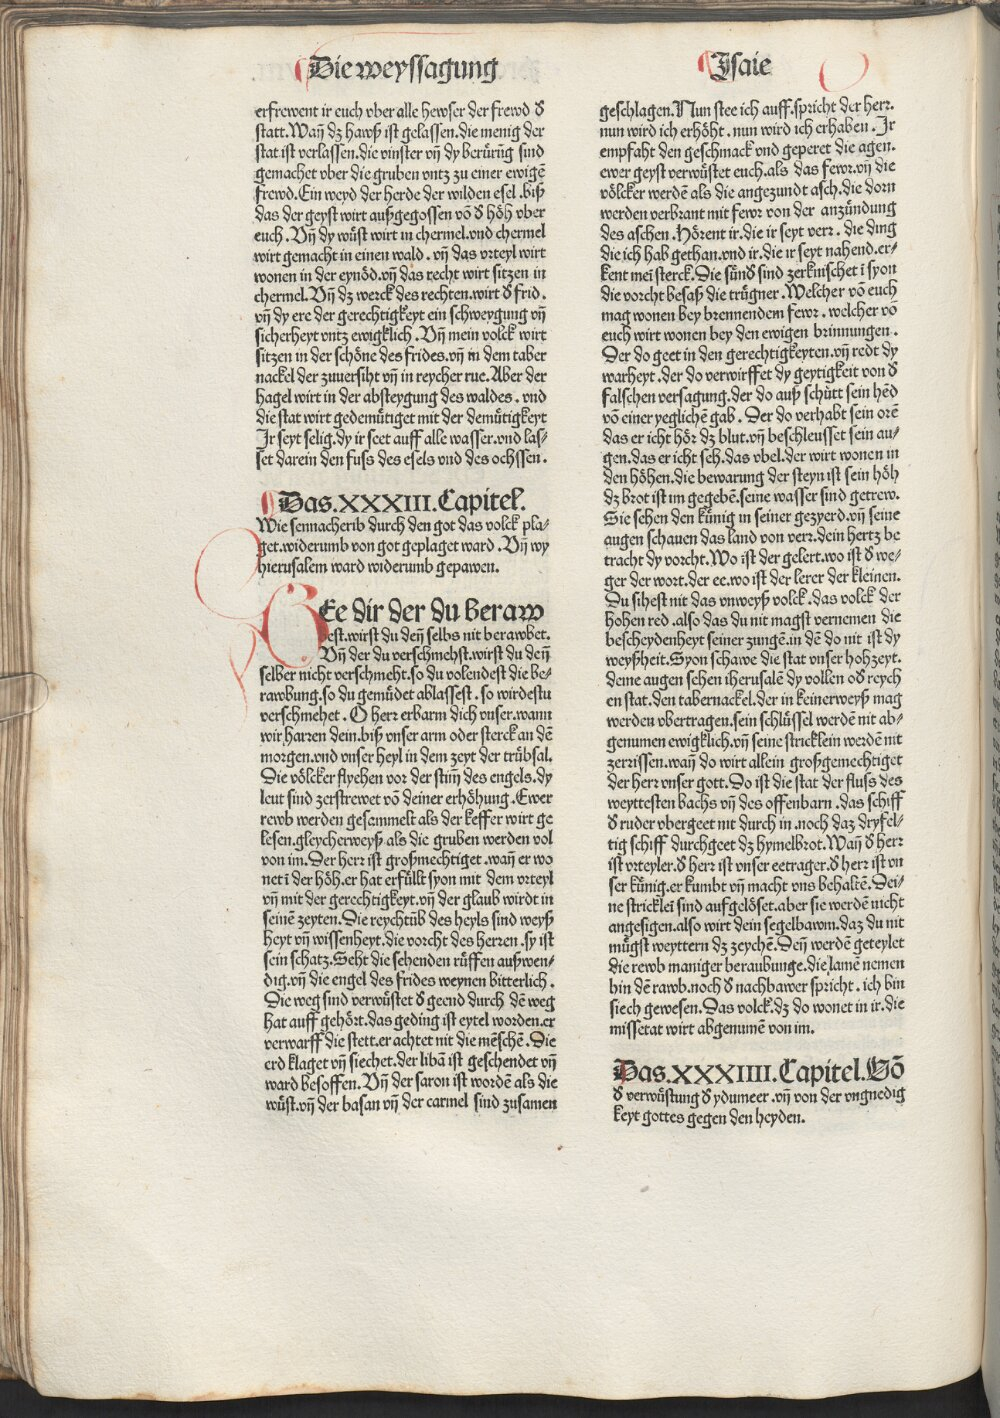 Die weyssagung
Jsaie
erfrewent ir euch vber alle hewser der frewd d̕
statt. Wañ dz hawß ist gelassen. die menig der
stat ist verlassen. die vinster vñ dy berürũg sind
gemachet vber die gruben vntz zu einer ewigẽ
frewd. Ein weyd der herde der wilden esel. biß
das der geyst wirt außgegossen võ d̕ höh vber
euch. Vñ dy wüst wirt in chermel. vnd chermel
wirt gemacht in einen wald. vñ das vrteyl wirt
wonen in der eynöd. vñ das recht wirt sitzen in
chermel. Vñ dz werck des rechten. wirt d̕ frid.
vñ dy ere der gerechtigkeyt ein schweygung vñ
sicherheyt vntz ewigklich. Vñ mein volck wirt
sitzen in der schöne des frides. vñ in dem taber
nackel der zuuersiht vñ in reycher rue. Aber der
hagel wirt in der absteygung des waldes. vnd
die stat wirt gedemütiget mit der demütigkeyt
Ir seyt selig. dy ir seet auff alle wasser. vnd las-
set darein den fuss des esels vnd des ochssen.
Das. XXXIII. Capitel.
Wie sennacherib durch den got das volck pla-
get. widerumb von got geplaget ward. Vñ wy
hierusalem ward widerumb gepawen.
WEe dir der du beraw
best. wirst du deñ selbs nit berawbet.
Vñ der du verschmehst. wirst du deñ
selber nicht verschmeht. so du volendest die be-
rawbung. so du gemüdet ablassest. so wirdestu
verschmehet. O herr erbarm dich vnser. wann
wir harren dein. biß vnser arm oder sterck an dẽ
morgen. vnd vnser heyl in dem zeyt der trübsal.
Die völcker flyehen vor der stim̃ des engels. dy
leut sind zerstrewet võ deiner erhöhung. Ewer
rewb werden gesammelt als der keffer wirt ge
lesen. gleycherweyß als die gruben werden vol
von im. Der herr ist großmechtiget. wañ er wo
net ĩ der höh. er hat erfüllt syon mit dem vrteyl
vñ mit der gerechtigkeyt. vñ der glaub wirdt in
seinẽ zeyten. Die reychtüb des heyls sind weyß
heyt vñ wissenheyt. die vorcht des herren. sy ist
sein schatz. Seht die sehenden rüffen außwen-
dig. vñ die engel des frides weynen bitterlich.
Die weg sind verwüstet d̕ geend durch dẽ weg
hat auff gehört. das geding ist eytel worden. er
verwarff die stett. er achtet nit die mẽschẽ. Die
erd klaget vñ siechet. der libã ist geschendet vñ
ward besoffen. Vñ der saron ist wordẽ als die
wüst. vñ der basan vñ der carmel sind zusamen
geschlagen. Nun stee ich auff. spricht der herr.
nun wird ich erhöht. nun wird ich erhaben. Ir
empfaht den geschmack vnd geperet die agen.
ewer geyst verwüstet euch. als das fewr. vñ die
völcker werdẽ als die angezundt asch. die dorn
werden verbrant mit fewr von der anzündung
des aschen. Hörent ir. die ir seyt verr. die ding
die ich hab gethan. vnd ir. die ir seyt nahend. er-
kent meĩ sterck. Die sünd̕ sind zerknischet ĩ syon
die vorcht besaß die trügner. Welcher võ euch
mag wonen bey brennendem fewr. welcher võ
euch wirt wonen bey den ewigen brinnungen.
Der do geet in den gerechtigkeyten. vñ redt dy
warheyt. der do verwirffet dy geytigkeit von d̕
falschen versagung. der do auß schütt sein hẽd
võ einer yeglichẽ gab. Der do verhabt sein orẽ
das er icht hör dz blut. vñ beschleusset sein au-
gen. das er icht seh. das vbel. der wirt wonen in
den höhen. die bewarung der steyn ist sein höh
dz brot ist im gegebẽ. seine wasser sind getrew.
Sie sehen den künig in seiner gezyerd. vñ seine
augen schauen das land von verr. dein hertz be
tracht dy vorcht. Wo ist der gelert. wo ist d̕ we-
ger der wort. der ee. wo ist der lerer der kleinen.
Du sihest nit das vnweyß volck. das volck der
hohen red. also das du nit magst vernemen die
bescheydenheyt seiner zungẽ. in dẽ do nit ist dy
weyßheit. Syon schawe die stat vnser hohzeyt.
deine augen sehen iherusalẽ dy vollen od̕ reych
en stat. den tabernackel. der in keinerweyß mag
werden vbertragen. sein schlüssel werdẽ nit ab-
genumen ewigklich. vñ seine stricklein werdẽ nit
zerrissen. wañ do wirt allein großgemechtiget
der herr vnser gott. Do ist die stat der fluss des
weyttesten bachs vñ des offenbarn. das schiff
d̕ ruder vbergeet nit durch in. noch daz dryfel-
tig schiff durchgeet dz hymelbrot. Wañ d̕ herr
ist vrteyler. d̕ herr ist vnser eetrager. d̕ herr ist vn
ser künig. er kumbt vñ macht vns behaltẽ. Dei-
ne stricklei sind aufgelöset. aber sie werdẽ nicht
angesigen. also wirt dein segelbawm. daz du nit
mügst weyttern dz zeychẽ. Deñ werdẽ geteylet
die rewb maniger beraubunge. die lamẽ nemen
hin dẽ rawb. noch d̕ nachbawer spricht. ich bin
siech gewesen. Das volck. dz do wonet in ir. die
missetat wirt abgenumẽ von im.
Das. XXXIIII. Capitel. Võ
d̕ verwüstung d̕ ydumeer. vñ von der vngnedig
keyt gottes gegen den heyden.